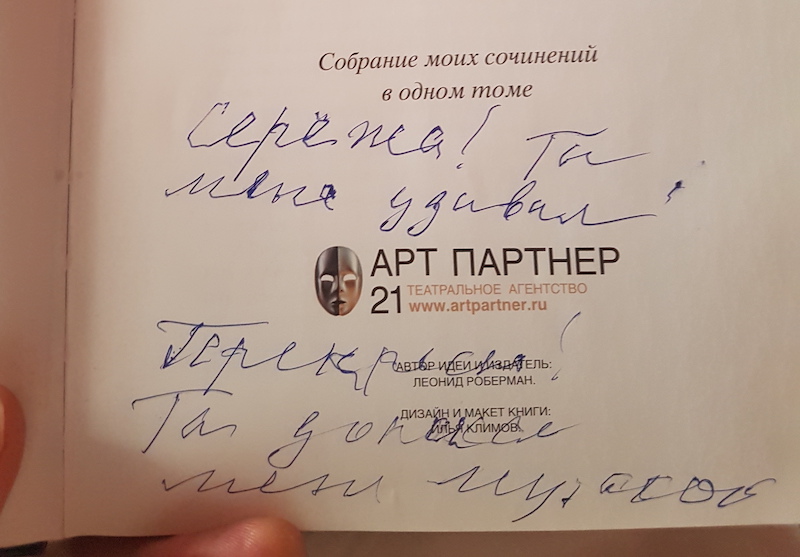 Собрание моих сочинений
в одном томе
Серёжа! Ты
меня удивил!
АРТ ПАРТНЕР
21 ТЕАТРАЛЬНОЕ АГЕНТСТВО
www.artpartner.ru
АВТОР ИДЕИ И ИЗДАТЕЛЬ:
ЛЕОНИД РОБЕРМАН.
ДИЗАЙН И МАКЕТ КНИГИ:
ИЛЬЯ КЛИМОВ.
Ты
меня музыкой